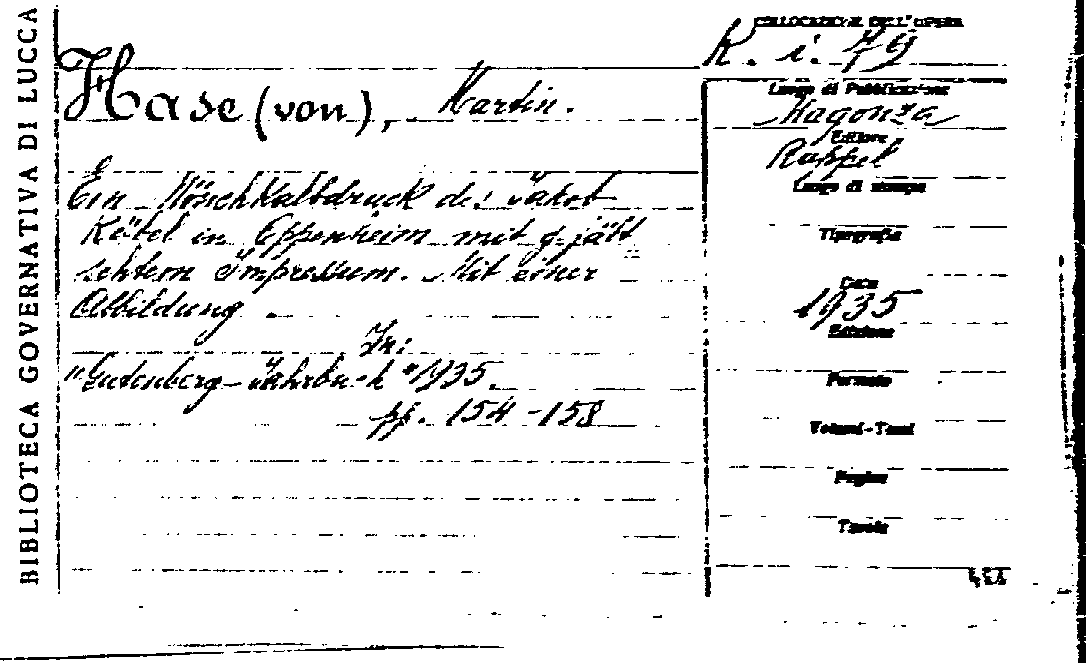 BIBLIOTECA GOVERNATIVA DI LUCCA
COLLOCAZIONE DELL'OPERA
K. i. 79
Hase (von), Martin.
Luogo di Pubblicazione
Magonza
Editore
Ruppel
Luogo di stampa
Tipografia
Data
1935
Edizione
Formato
Volumi-Tomi
Pagine
Tavole
Ein Mönchkalbdruck des Jakob
Köbel in Oppenheim mit g jält
schtem Impressum. Mit einer
Abbildung.
In:
"Gutenberg-Jahrbuch" 1935.
pp. 154-158